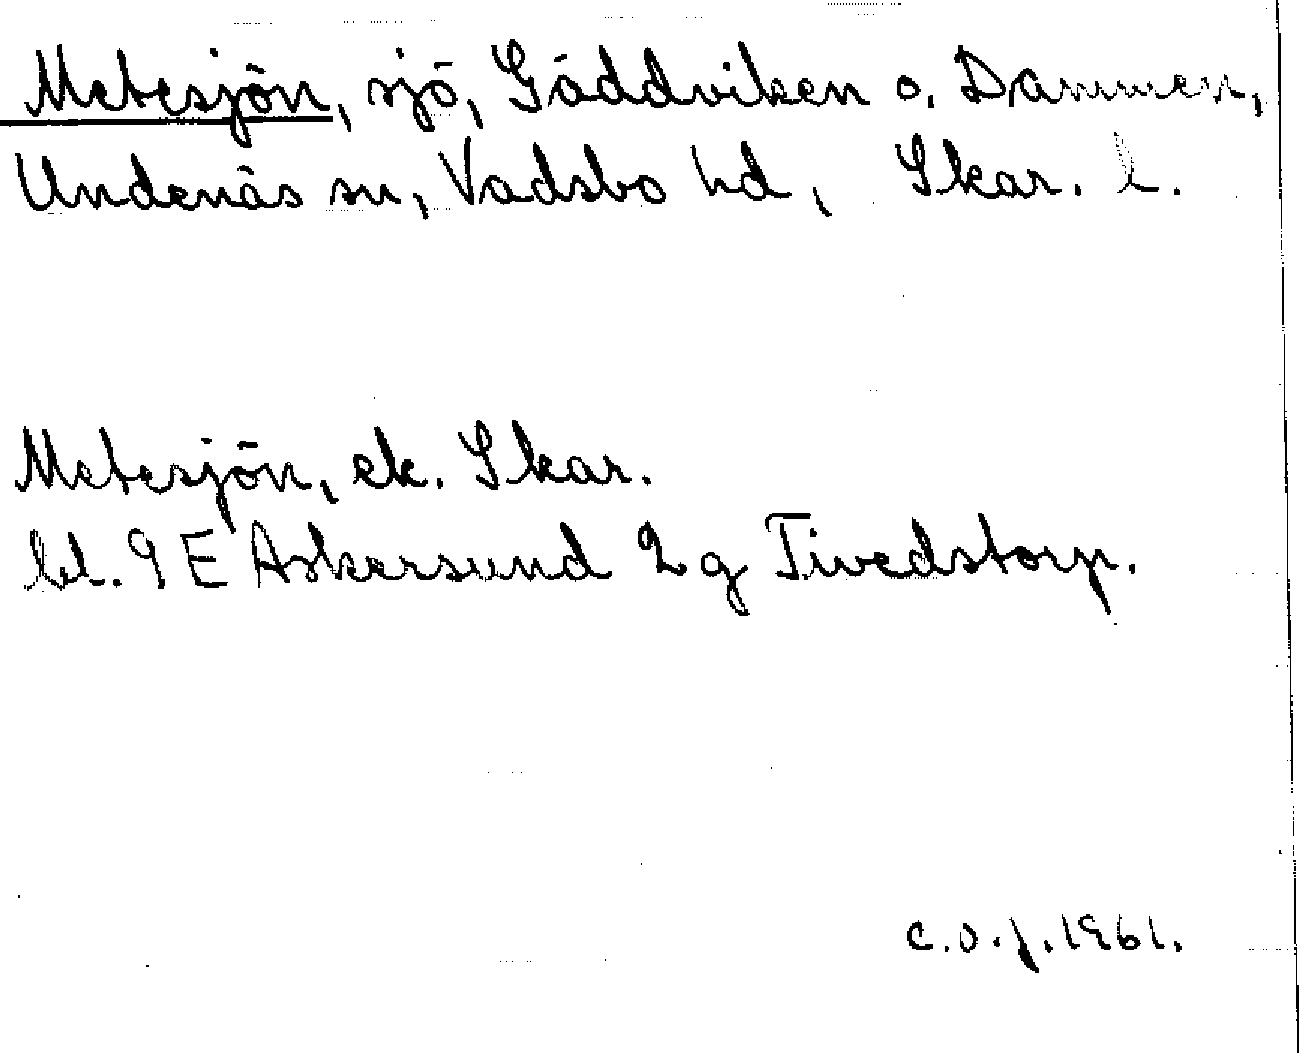 Metesjön, sjö, Gäddviken o. Dammen,
Undenäs sn, Vadsbo hd, Skar. l.
Metesjön, ek. Skar.
bl. 9 E Askersund 2 g Tivedstorp.
C.O.J. 1961.